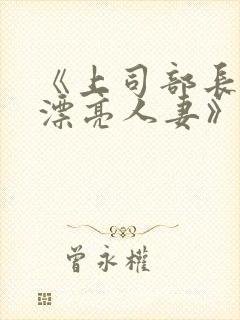 《上司部長
漂亮人妻》
曾永權